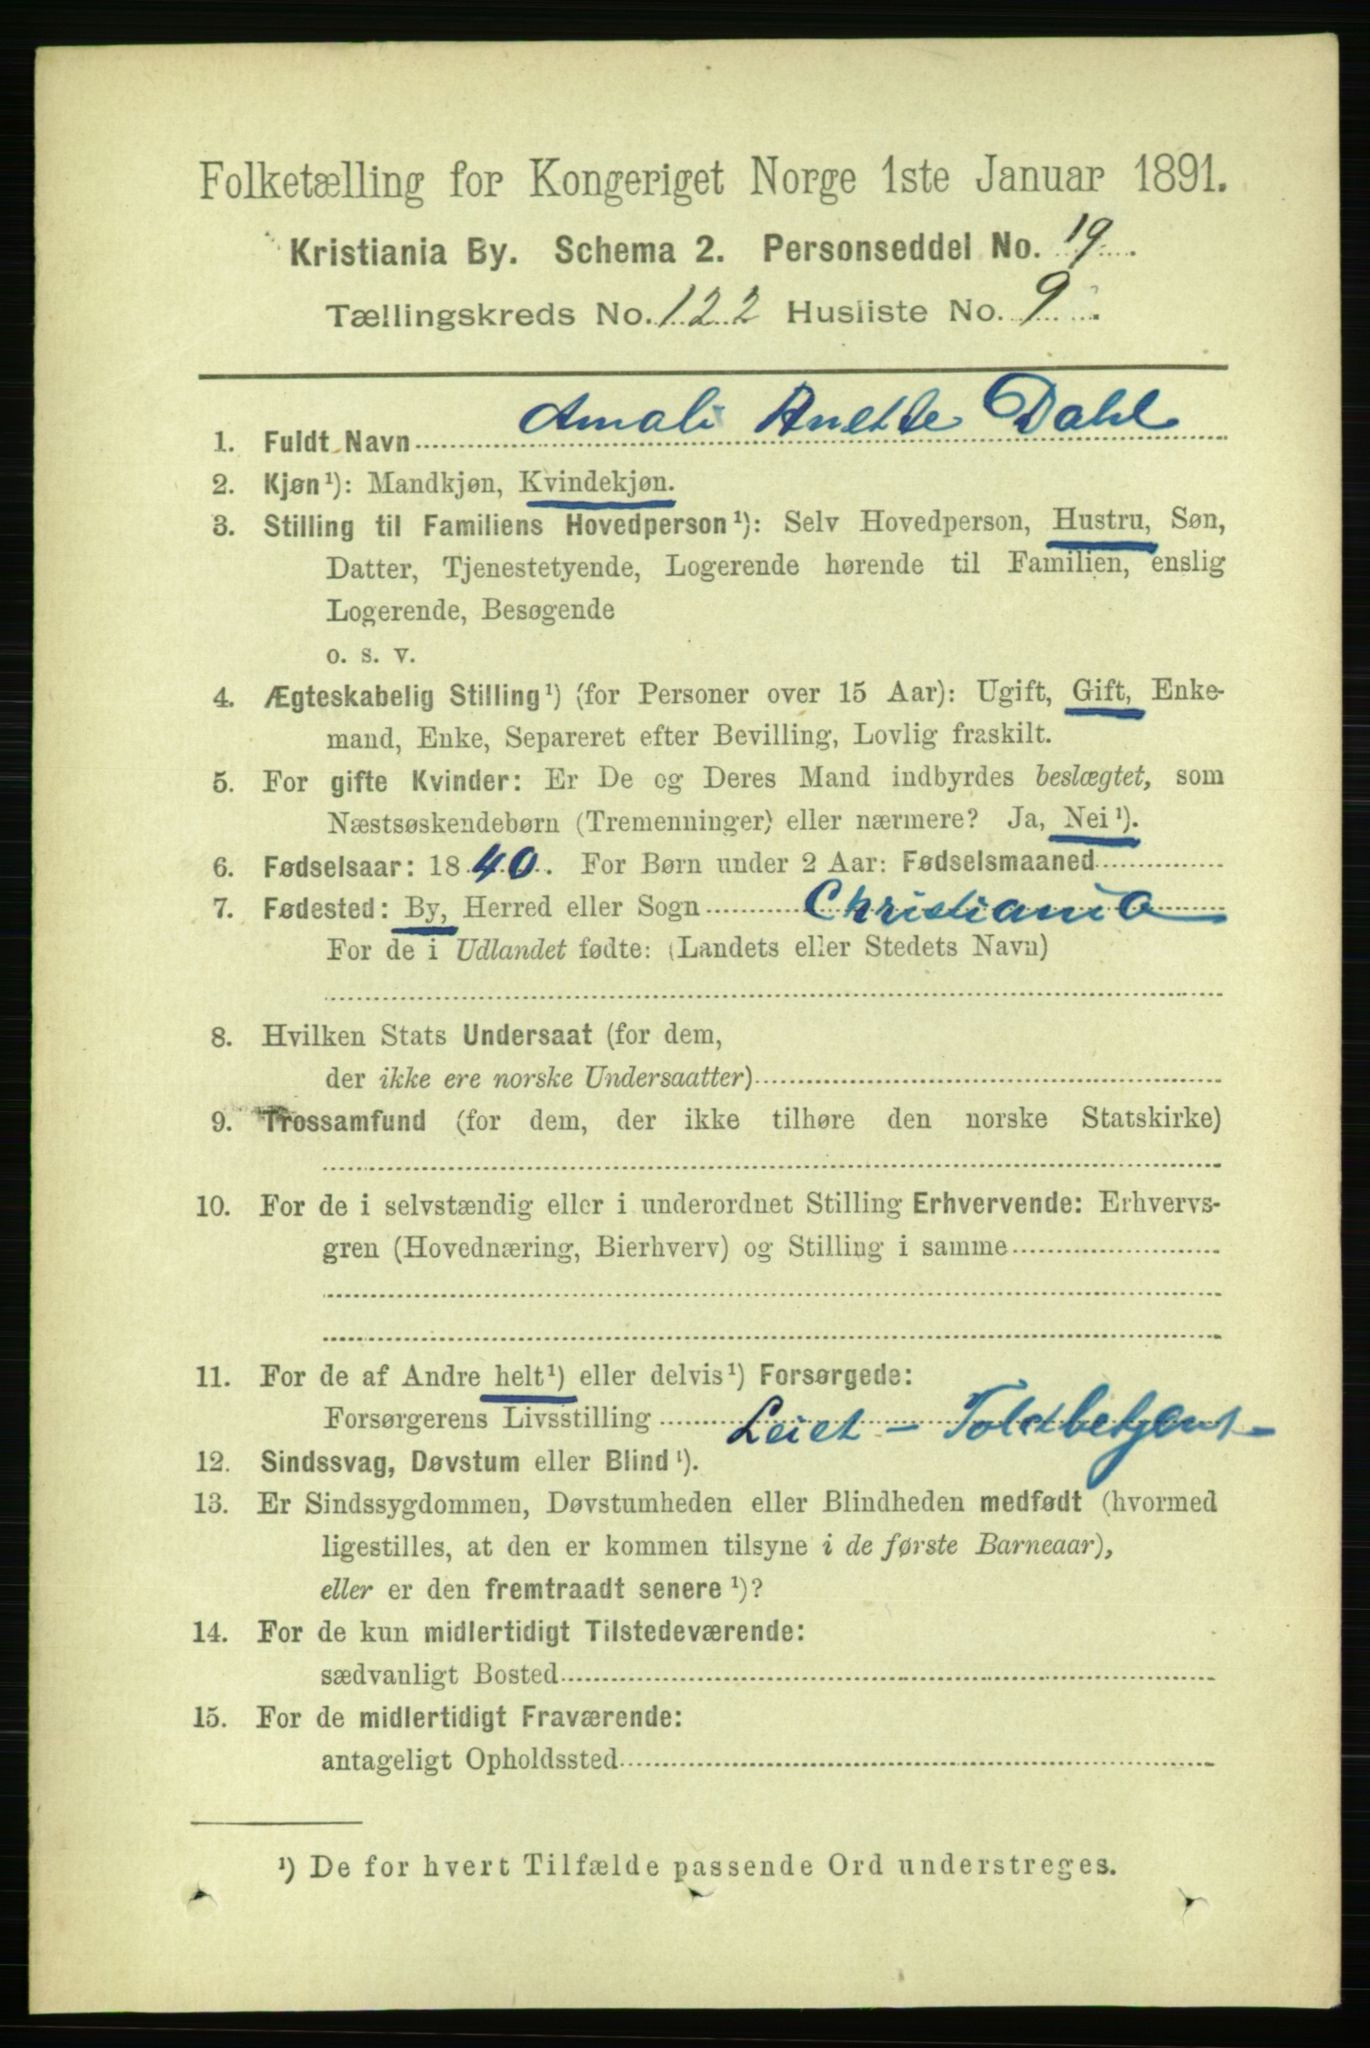 Folketælling for Kongeriget Norge 1ste Januar 1891.
Kristiania By. Schema 2. Personseddel No. 19
Tællingskreds No. 122 Husliste No. 9
1. Fuldt Navn Amali Anette Dahl
2. Kjøn¹): Mandkjøn, Kvindekjøn.
3. Stilling til Familiens Hovedperson¹): Selv Hovedperson, Hustru, Søn,
Datter, Tjenestetyende, Logerende hørende til Familien, enslig
Logerende, Besøgende
o. s. v.
4. Ægteskabelig Stilling¹) (for Personer over 15 Aar): Ugift, Gift, Enke-
mand, Enke, Separeret efter Bevilling, Lovlig fraskilt.
5. For gifte Kvinder: Er De og Deres Mand indbyrdes beslægtet, som
Næstsøskendebørn (Tremenninger) eller nærmere? Ja, Nei¹).
6. Fødselsaar: 1840. For Børn under 2 Aar: Fødselsmaaned
7. Fødested: By, Herred eller Sogn Christiania
For de i Udlandet fødte: (Landets eller Stedets Navn)
8. Hvilken Stats Undersaat (for dem,
der ikke ere norske Undersaatter)
9. Trossamfund (for dem, der ikke tilhøre den norske Statskirke)
10. For de i selvstændig eller i underordnet Stilling Erhvervende: Erhvervs-
gren (Hovednæring, Bierhverv) og Stilling i samme
11. For de af Andre helt¹) eller delvis¹) Forsørgede:
Forsørgerens Livsstilling Leiet -
12. Sindssvag, Døvstum eller Blind¹).
13. Er Sindssygdommen, Døvstumheden eller Blindheden medfødt (hvormed
ligestilles, at den er kommen tilsyne i de første Barneaar),
eller er den fremtraadt senere¹)?
14. For de kun midlertidigt Tilstedeværende:
sædvanligt Bosted
15. For de midlertidigt Fraværende:
antageligt Opholdssted
¹) De for hvert Tilfælde passende Ord understreges.